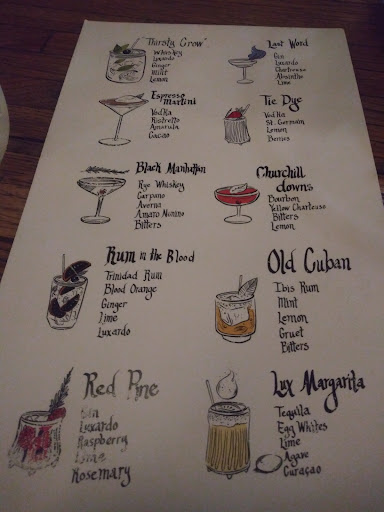 "Thirsty Crow"
Whiskey
Luxardo
Ginger
Mint
Lemon
Last Word
Gin
Luxardo
Chartreuse
Absinthe
Lime
Espresso
Martini
Vodka
Ristretto
Amarula
Cacao
Tie Dye
Vodka
St. Germain
Lemon
Berries
Black Manhattan
Rye Whiskey
Carpano
Averna
Amaro Nonino
Bitters
Churchill
downs
Bourbon
Yellow Chartreuse
Bitters
Lemon
Rum in the Blood
Trinidad Rum
Blood Orange
Ginger
Lime
Luxardo
Old Cuban
Ibis Rum
Mint
Lemon
Gruet
Bitters
Red Pine
Gin
Luxardo
Raspberry
Lime
Rosemary
Lux Margarita
Tequila
Egg Whites
Lime
Agave
Curaçao